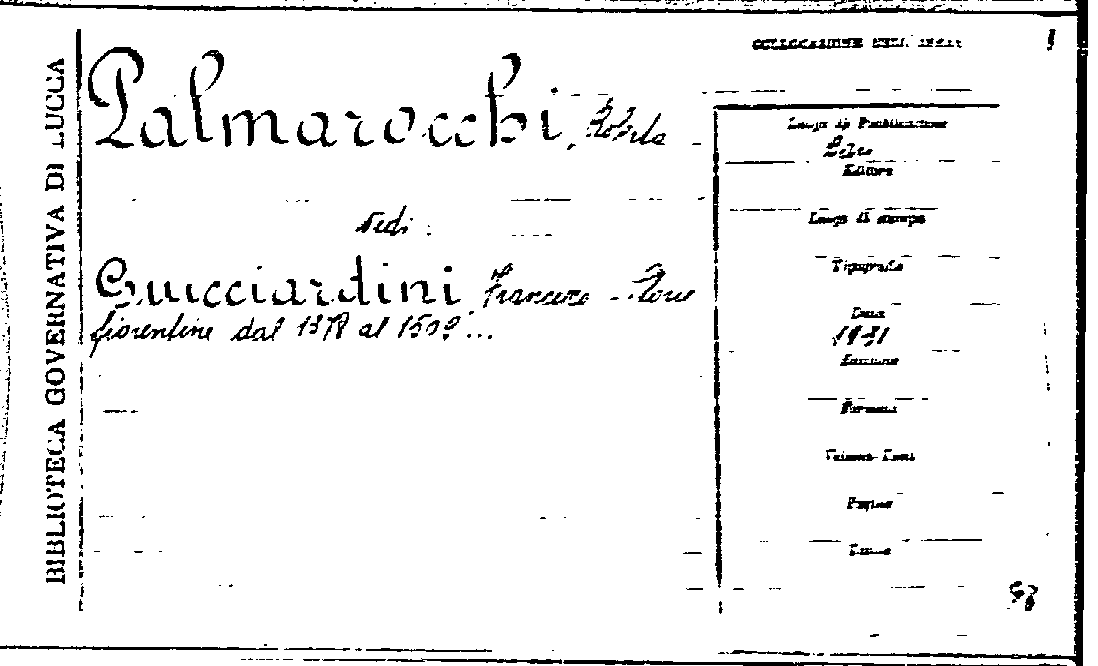 BIBLIOTECA GOVERNATIVA DI LUCCA
COLLOCAZIONE DELL'OPERA
Palmarocchi, Roberto
Vedi:
Guicciardini, Francesco - Storie
fiorentine dal 1378 al 1509...
Luogo di Pubblicazione
Editore
Luogo di stampa
Tipografia
Data
1931
Edizione
Formato
Volumi-Tomi
Pagine
98